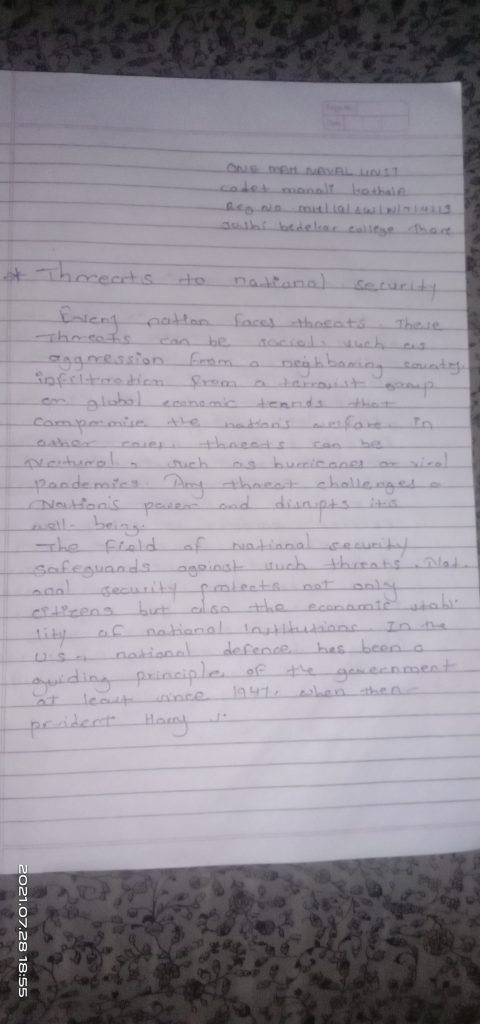 ONE MAH NAVAL UNIT
cadet manali
Reg No
Joshi bedekar college Thane
* Threearts to national security
Every nation faces threats. These
Threats can be social, such as
aggression from a neighboring country,
infiltration from a terrorist group
or global economic trends that
compromise the nation's welfare. In
other cases, threats can be
Natural, such as hurricanes or viral
pandemics. Any threat challenges a
Nation's power and disrupts its
well-being.
The field of National security
safeguards against such threats. Nati
onal security protects not only
citizens but also the economic stabi-
lity of national institutions. In the
U.S., national defence has been a
guiding principle of the government
at least since 1947, when then-
prsident Harry
2021.07.28 18:55